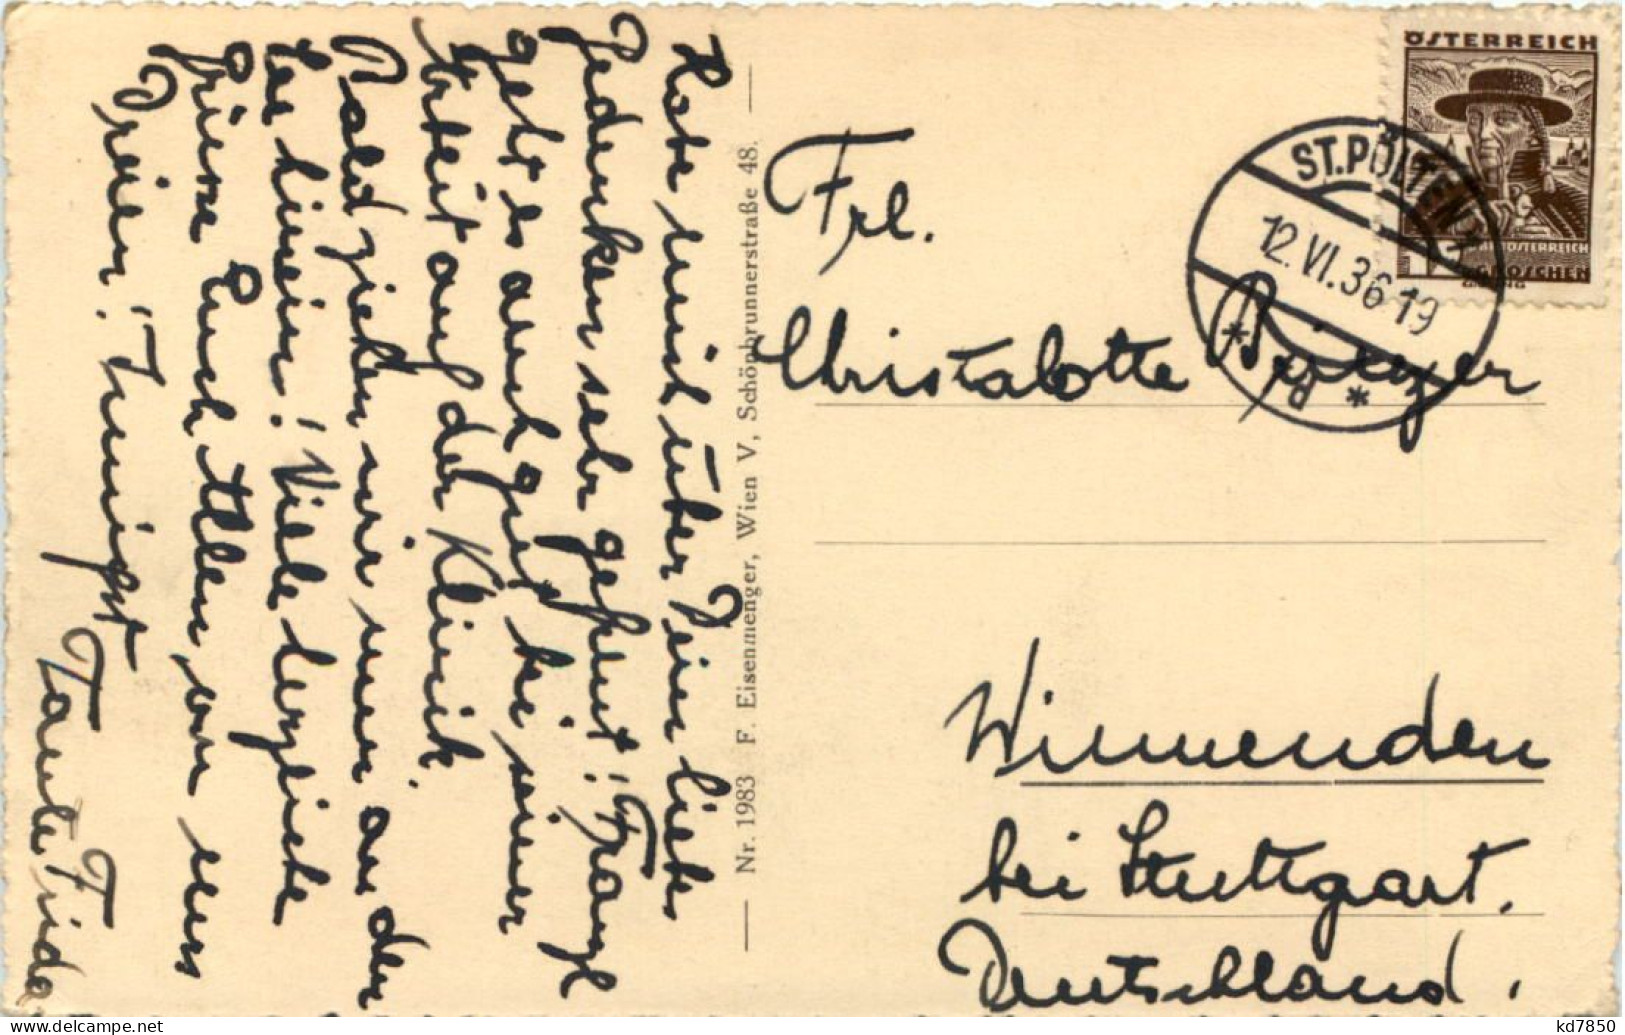 Habe mich über Dein liebes
Gedenken sehr gefreut! Franzl
geht es auch gut bei seiner
Arbeit auf der Klinik.
Bald ziehen wir nun an der
See hinein! Viele herzliche
Grüsse Euch Allen, von uns
Dreien! Innigst
Tante Frida
Nr. 1983 F. Eisenmenger, Wien V, Schönbrunnerstraße 48.
ÖSTERREICH
GROSCHEN
ST. PÖLTEN 1
12.VI.36 19
Frl.
Christalotte
Winnenden
bei Stuttgart.
Deutschland.
kd7850